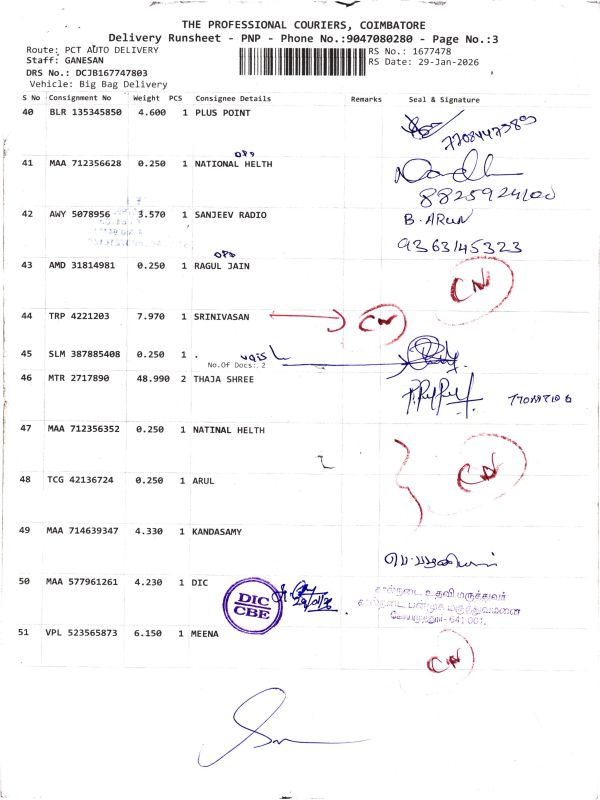 THE PROFESSIONAL COURIERS, COIMBATORE
Delivery Runsheet - PNP - Phone No.:9047080280 - Page No.:3
Route: PCT AUTO DELIVERY RS No.: 1677478
Staff: GANESAN RS Date: 29-Jan-2026
DRS No.: DCJB167747803
Vehicle: Big Bag Delivery
S No Consignment No Weight PCS Consignee Details Remarks Seal & Signature
40 BLR 135345850 4.600 1 PLUS POINT
41 MAA 712356628 0.250 1 NATIONAL HELTH
8825924100
42 AWY 5078956 3.570 1 SANJEEV RADIO B. ARUN
9363145323
43 AMD 31814981 0.250 1 RAGUL JAIN CN
44 TRP 4221203 7.970 1 SRINIVASAN CN
45 SLM 387885408 0.250 1 .
No.Of Docs: 2
46 MTR 2717890 48.990 2 THAJA SHREE
47 MAA 712356352 0.250 1 NATINAL HELTH
CN
48 TCG 42136724 0.250 1 ARUL
49 MAA 714639347 4.330 1 KANDASAMY
50 MAA 577961261 4.230 1 DIC
DIC
CBE
29/01/26
கால்நடை உதவி மருத்துவர்
கால்நடை பன்முக மருத்துவமனை
கோயமுத்தூர் - 641 001.
51 VPL 523565873 6.150 1 MEENA
CN